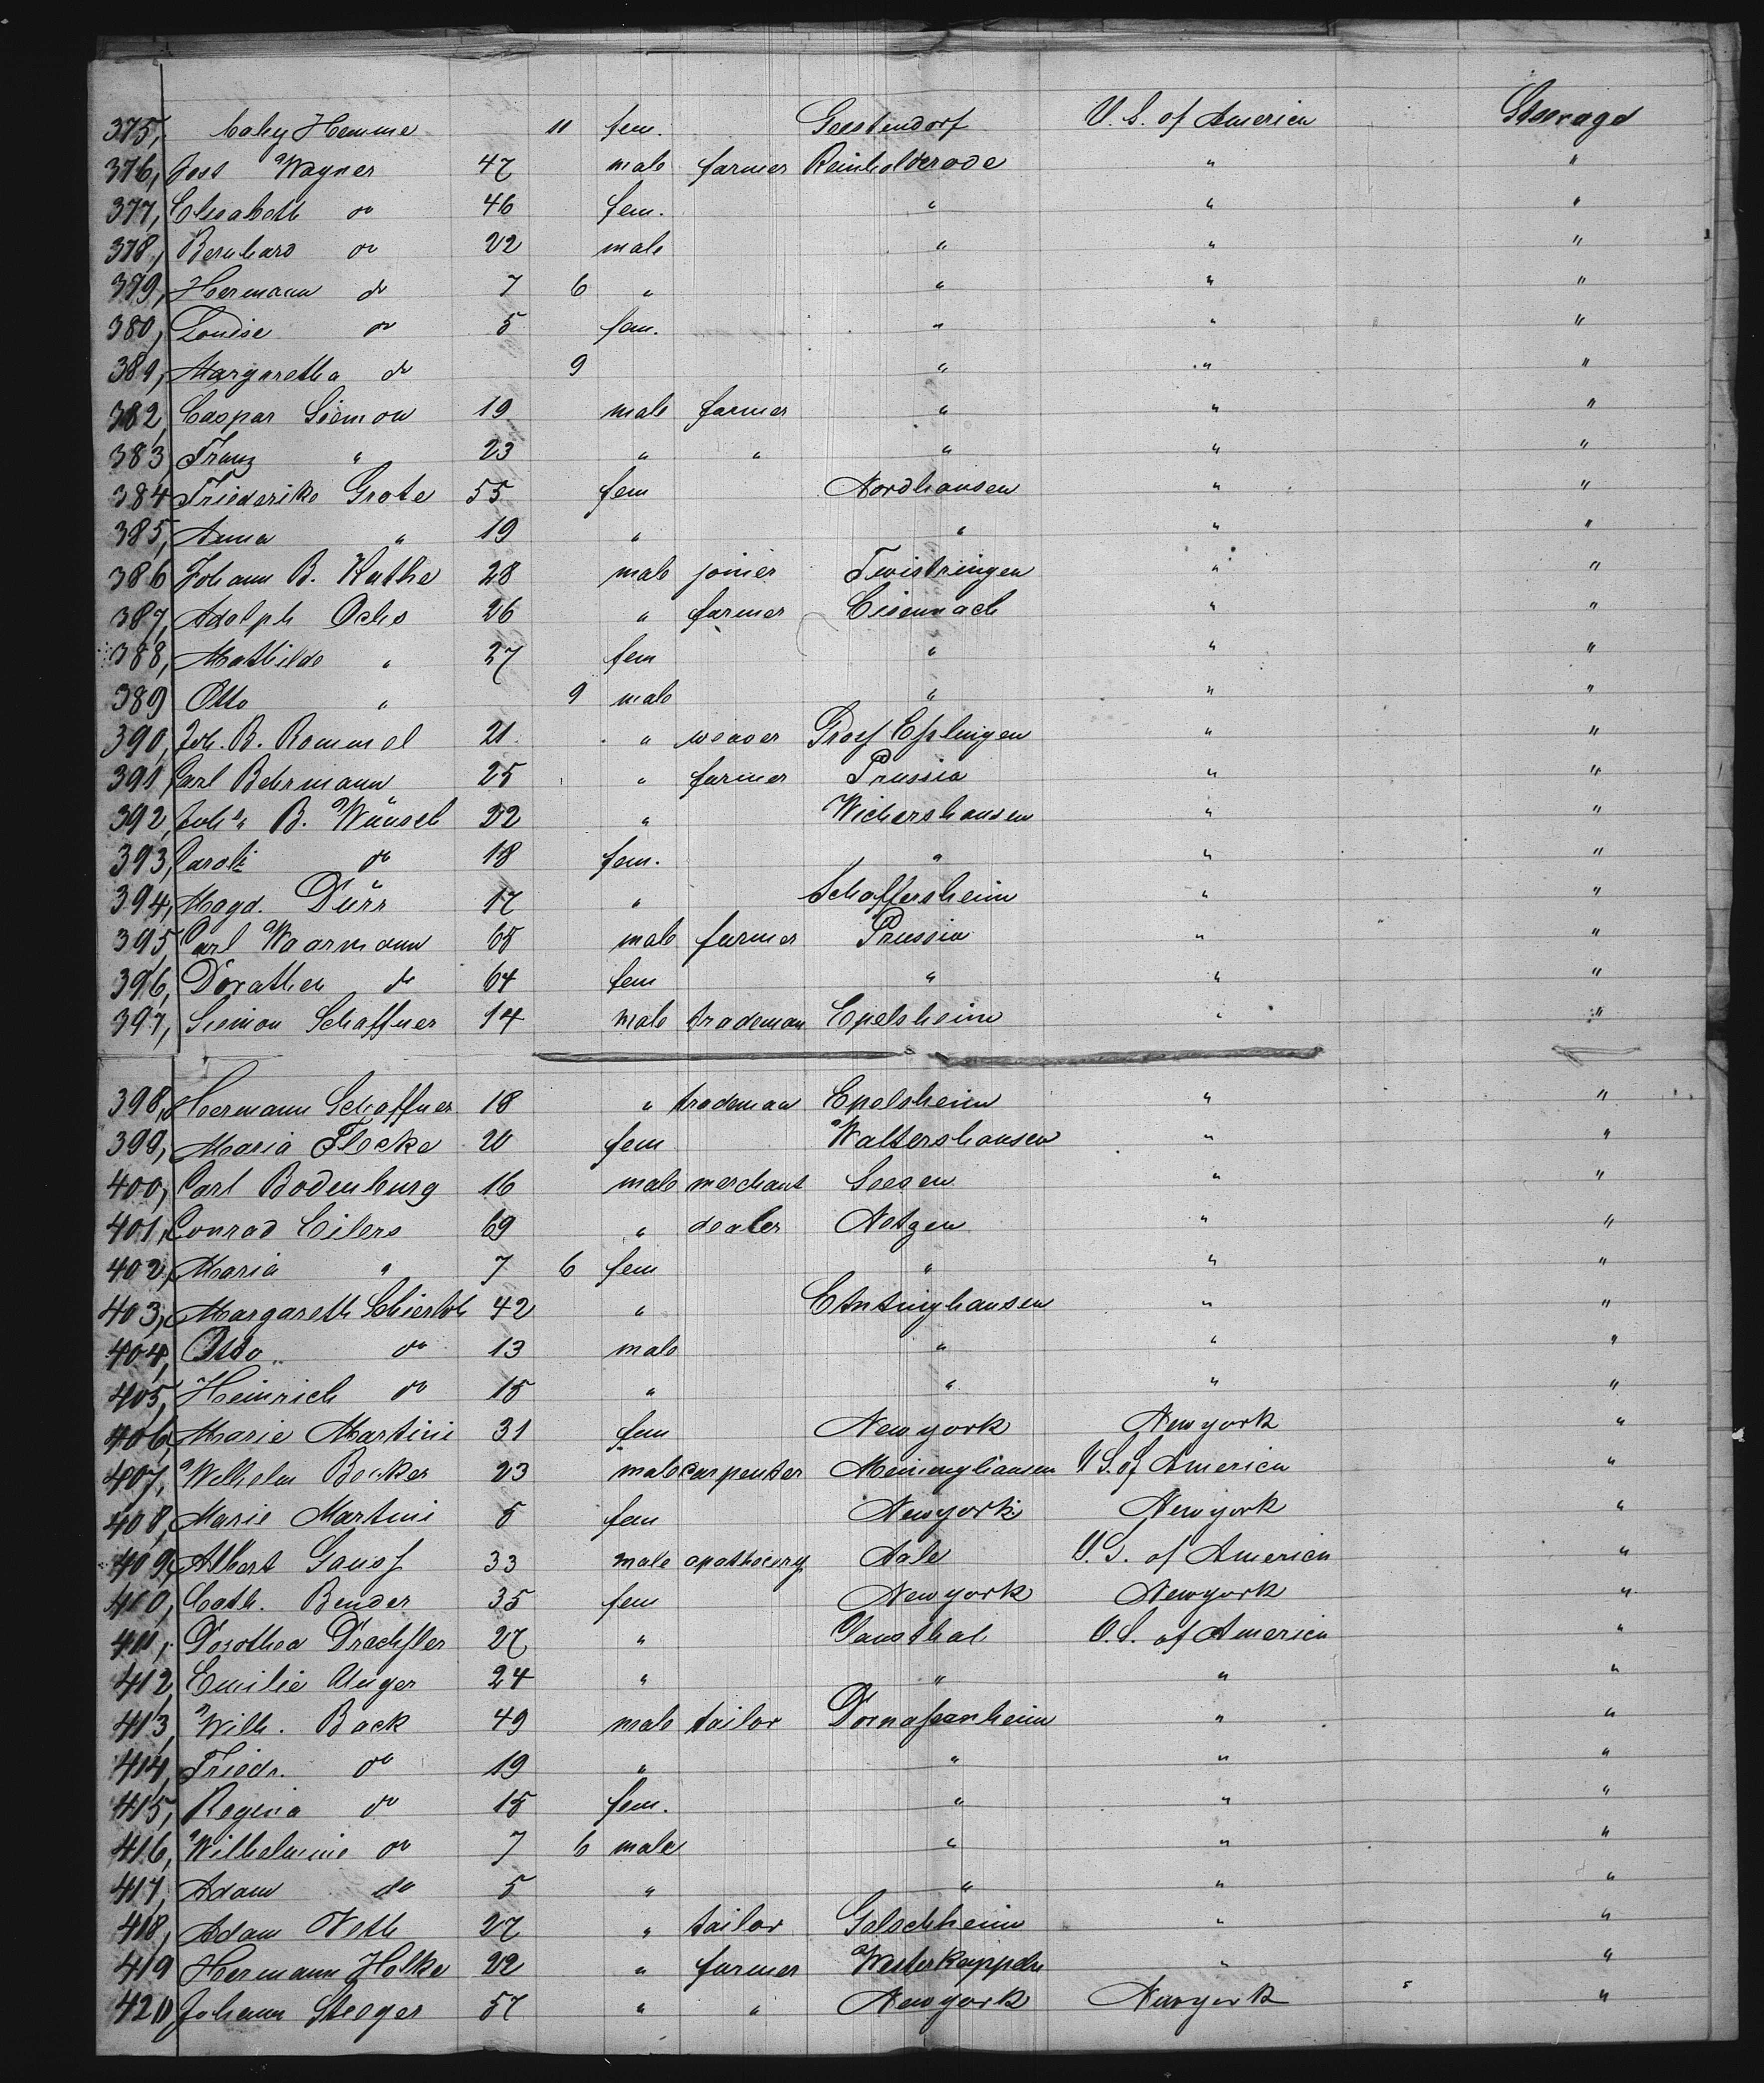 375, baby Hemme 11 fem. Geestendorf U. S. of America Steerage
376, Jost Wagner 47 male farmer Reinholderode " "
377, Elisabeth do 46 fem. " " "
378, Bernhard do 22 male " " "
379, Hermann do 7 6 " " " "
380, Louise do 5 fem. " " "
381, Margaretha do 9 " " "
382, Caspar Siemon 19 male farmer " " "
383, Franz " 23 " " " " "
384 Friederike Grote 55 fem Nordhausen " "
385, Anna " 19 " " " "
386 Johann B. Kathe 28 male joiner Twistringen " "
387, Adolph Ochs 26 " farmer Eisennach " "
388, Mathilde " 27 fem " " "
389 Otto " 9 male " " "
390, Joh. B. Rommel 21 " weaver Gross Esslingen " "
391, Carl Behrmann 25 " farmer Prussia " "
392, Joh. B. Wünsch 22 " Wichershausen " "
393, Carol. do 18 fem. " " "
394, Magd. Dürr 17 " Schaffersheim " "
395, Carl Waarmann 65 male farmer Prussia " "
396, Dorathea do 64 fem " " "
397, Siemon Schaffner 14 male trademan Epelsheim " "
398, Hermann Schaffner 18 " trademan Epelsheim " "
399, Maria Flecke 20 fem Waltershausen " "
400, Carl Bodenburg 16 male merchant Seesen " "
401, Conrad Eilers 69 " dealer Netzen " "
402, Maria " 7 6 fem " " "
403, Margareth Schierloh 42 " " "
404, Otto do 13 male " " "
405, Heinrich do 15 " " " "
406 Marie Martini 31 fem Newyork Newyork "
407, Wilhelm Becker 23 male carpenter Meininghausen U S. of America "
408, Marie Martini 5 fem Newyork Newyork "
409, Albert Gauss 33 male apothecery Aale U. S. of America "
410, Cath. Bender 35 fem Newyork Newyork "
411, Dorothea Drechsler 27 " Clausthal U. S. of America "
412, Emilie Unger 24 " " " "
413, Wilh. Back 49 male tailor Dornassenheim " "
414, Friedr. do 19 " " " "
415, Regina do 15 fem. " " "
416, Wilhelmine do 7 6 male " " "
417, Adam do 5 " " " "
418, Adam Veth 27 " tailor Golschheim " "
419 Hermann Holke 22 " farmer Westerkappeln " "
420 Johann Steger 57 " " Newyork Newyork "